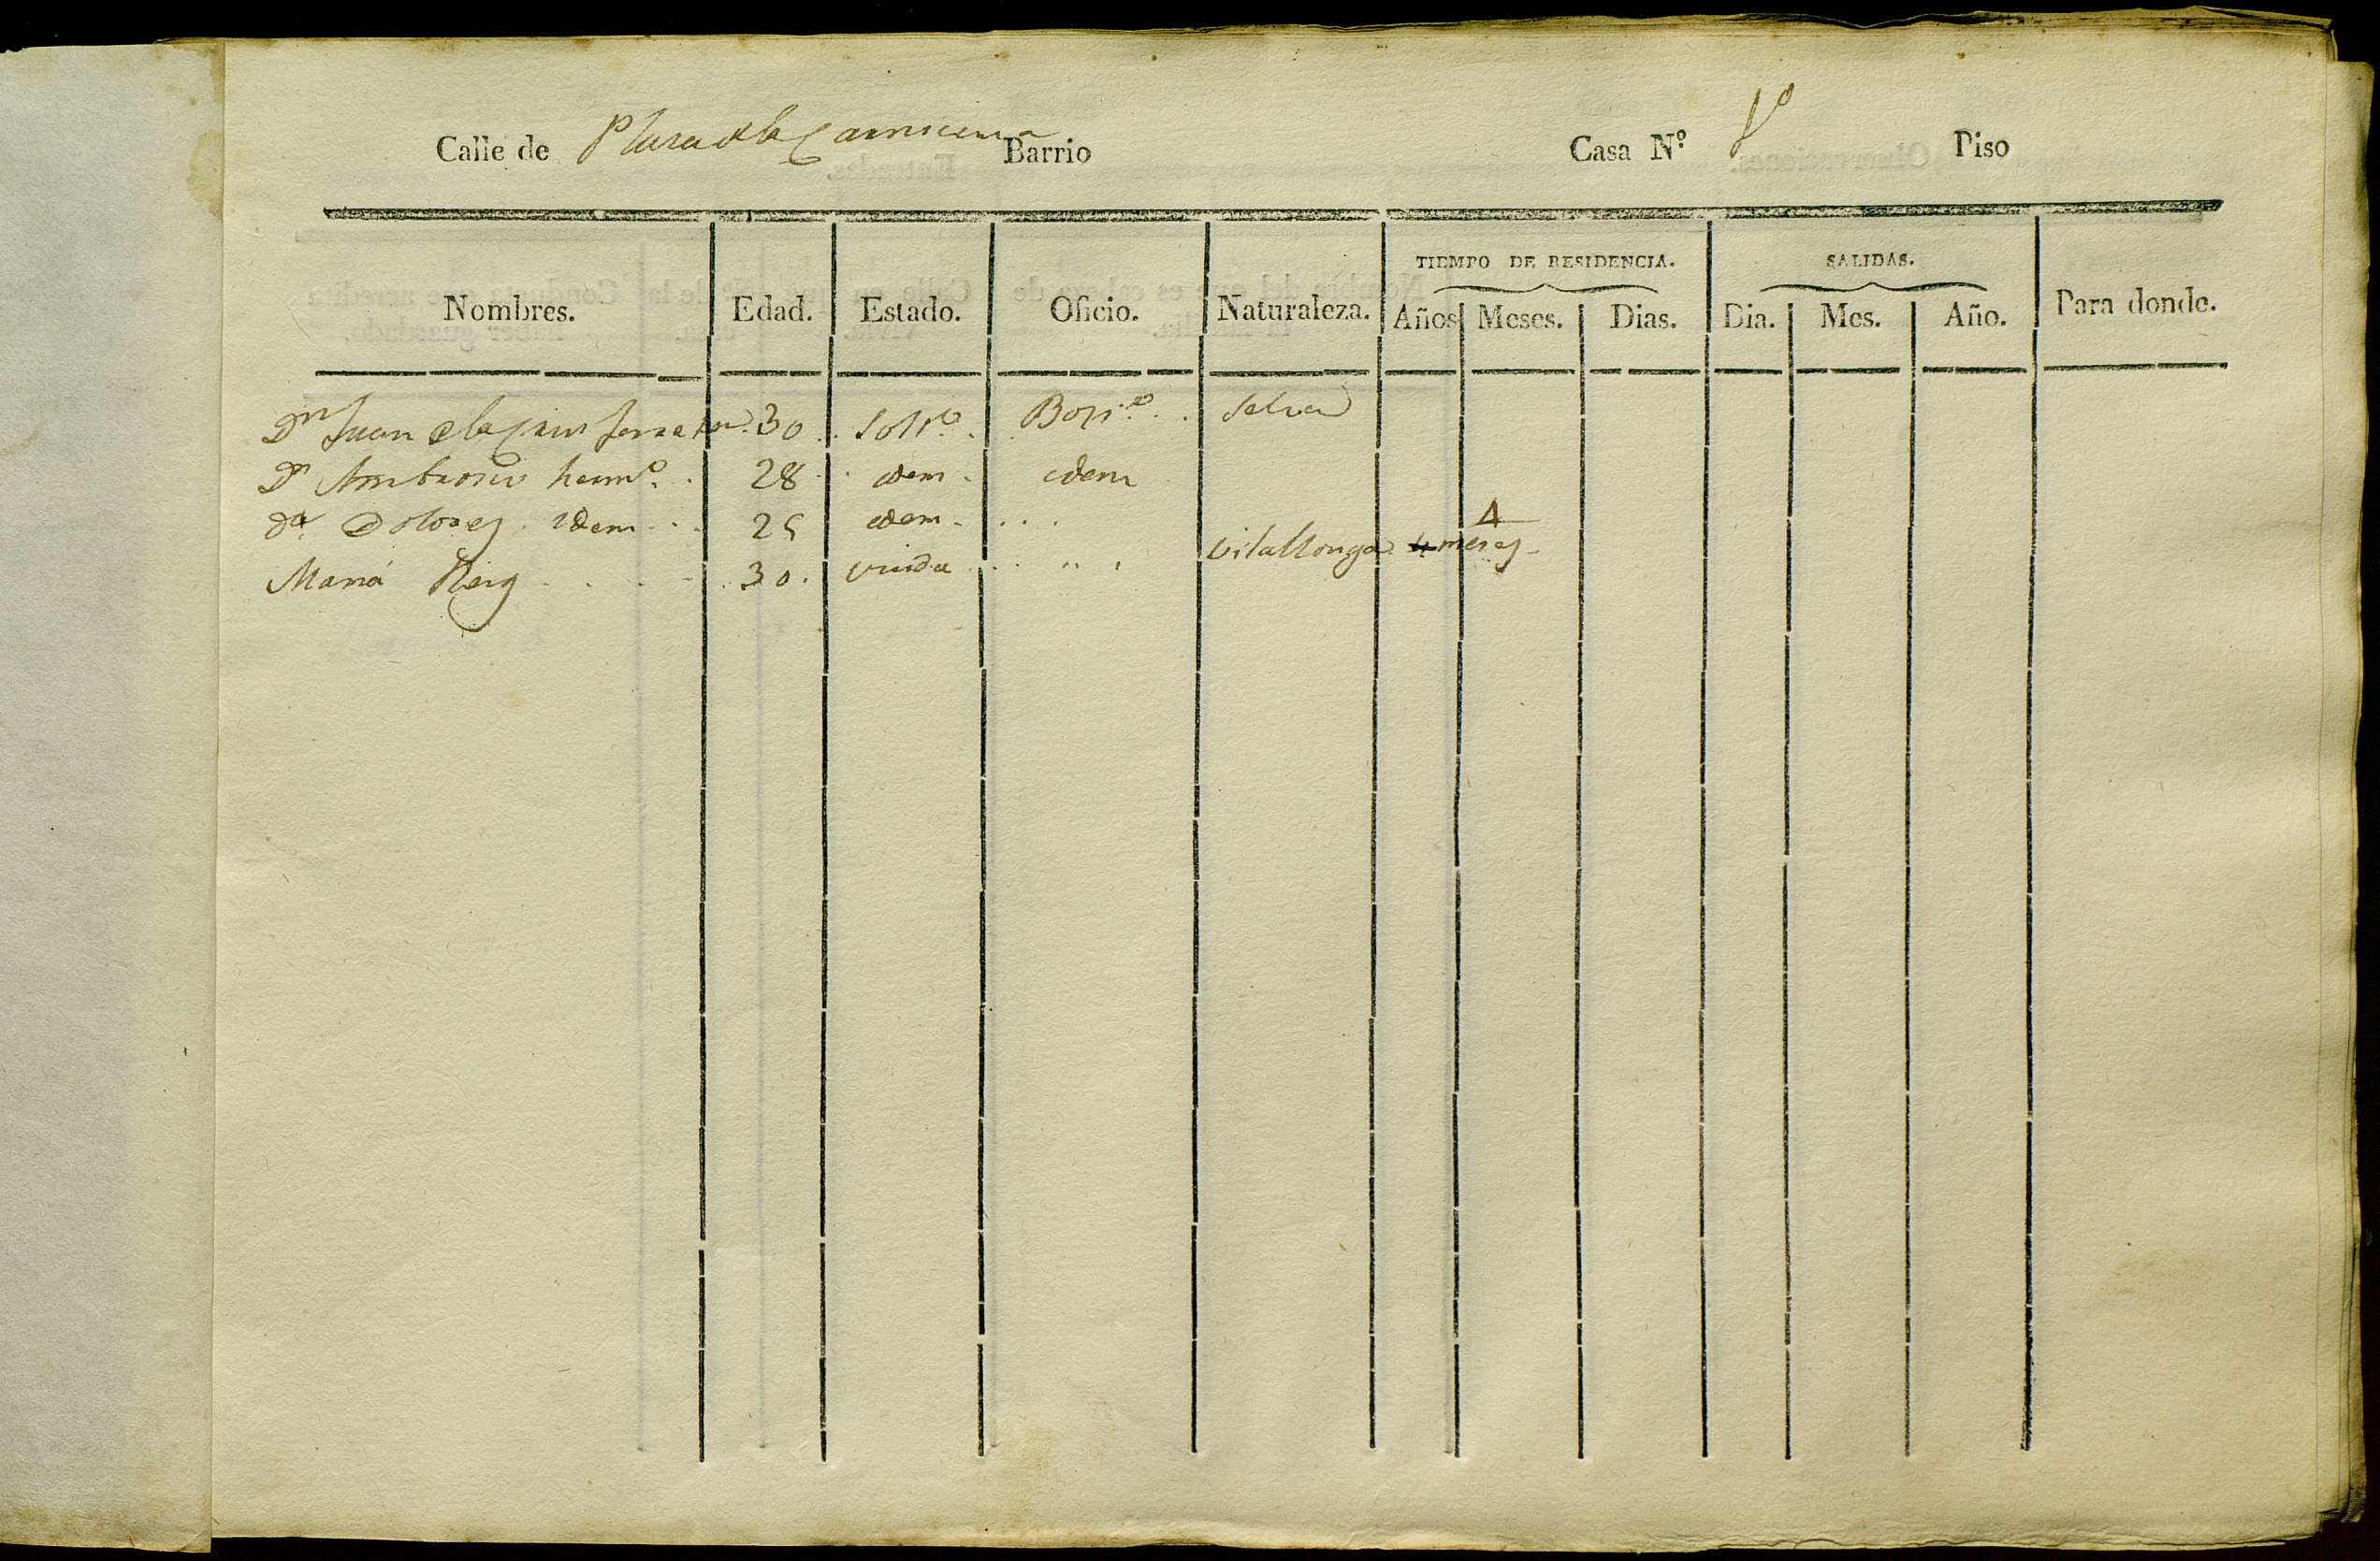 Calle de Plasa de la Carniceria Barrio Casa Nº 1º Piso
TIEMPO DE RESIDENCIA. SALIDAS.
Nombres. Edad. Estado. Oficio. Naturaleza. Años Meses. Dias. Dia. Mes. Año. Para donde.
Dn Juan de la Cruz 30 Soltº. Botiº. Selva
Dn Ambrosio hermº. 28 idem. idem
Dª Dolores idem 25 idem
4
Maria Reig 30. viuda Vilallonga 4 meses